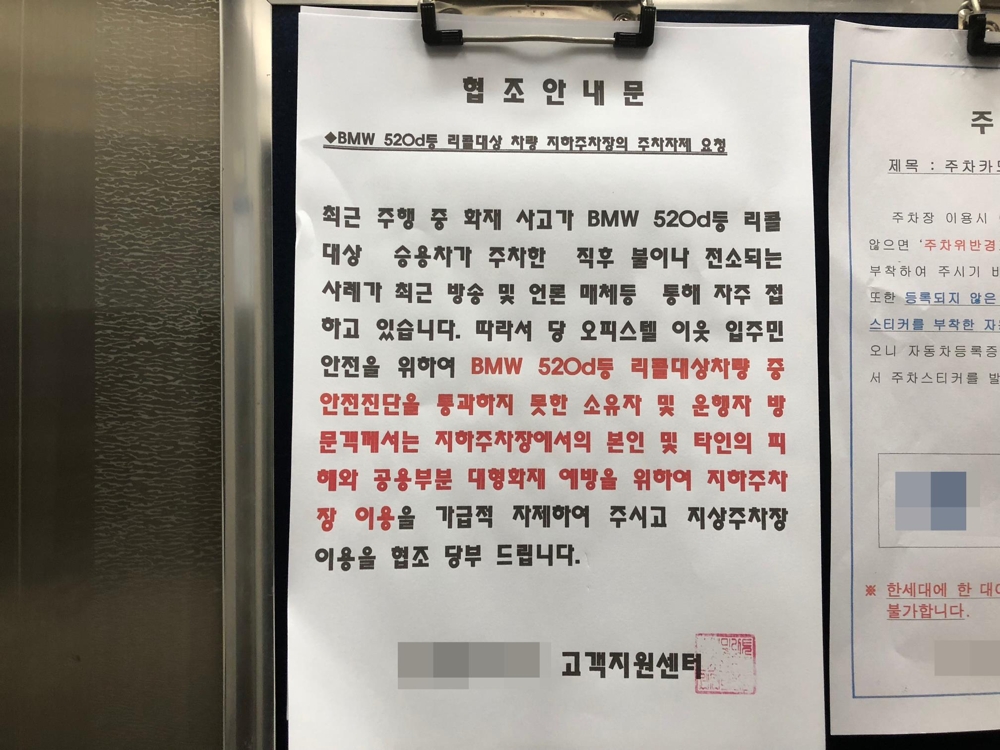 협조안내문
◆BMW 520d등 리콜대상 차량 지하주차장의 주차자제 요청
최근 주행 중 화재 사고가 BMW 520d등 리콜
대상 승용차가 주차한 직후 불이나 전소되는
사례가 최근 방송 및 언론 매체등 통해 자주 접
하고 있습니다. 따라서 당 오피스텔 이웃 입주민
안전을 위하여 BMW 520d등 리콜대상차량 중
안전진단을 통과하지 못한 소유자 및 운행자 방
문객께서는 지하주차장에서의 본인 및 타인의 피
해와 공용부분 대형화재 예방을 위하여 지하주차
장 이용을 가급적 자제하여 주시고 지상주차장
이용을 협조 당부 드립니다.
고객지원센터
주
제목 : 주차카드
주차장 이용시
않으면 '주차위반경
부착하여 주시기 바
또한 등록되지 않은
스티커를 부착한 자
오니 자동차등록증
서 주차스티커를 발
※ 한세대에 한 대
불가합니다.